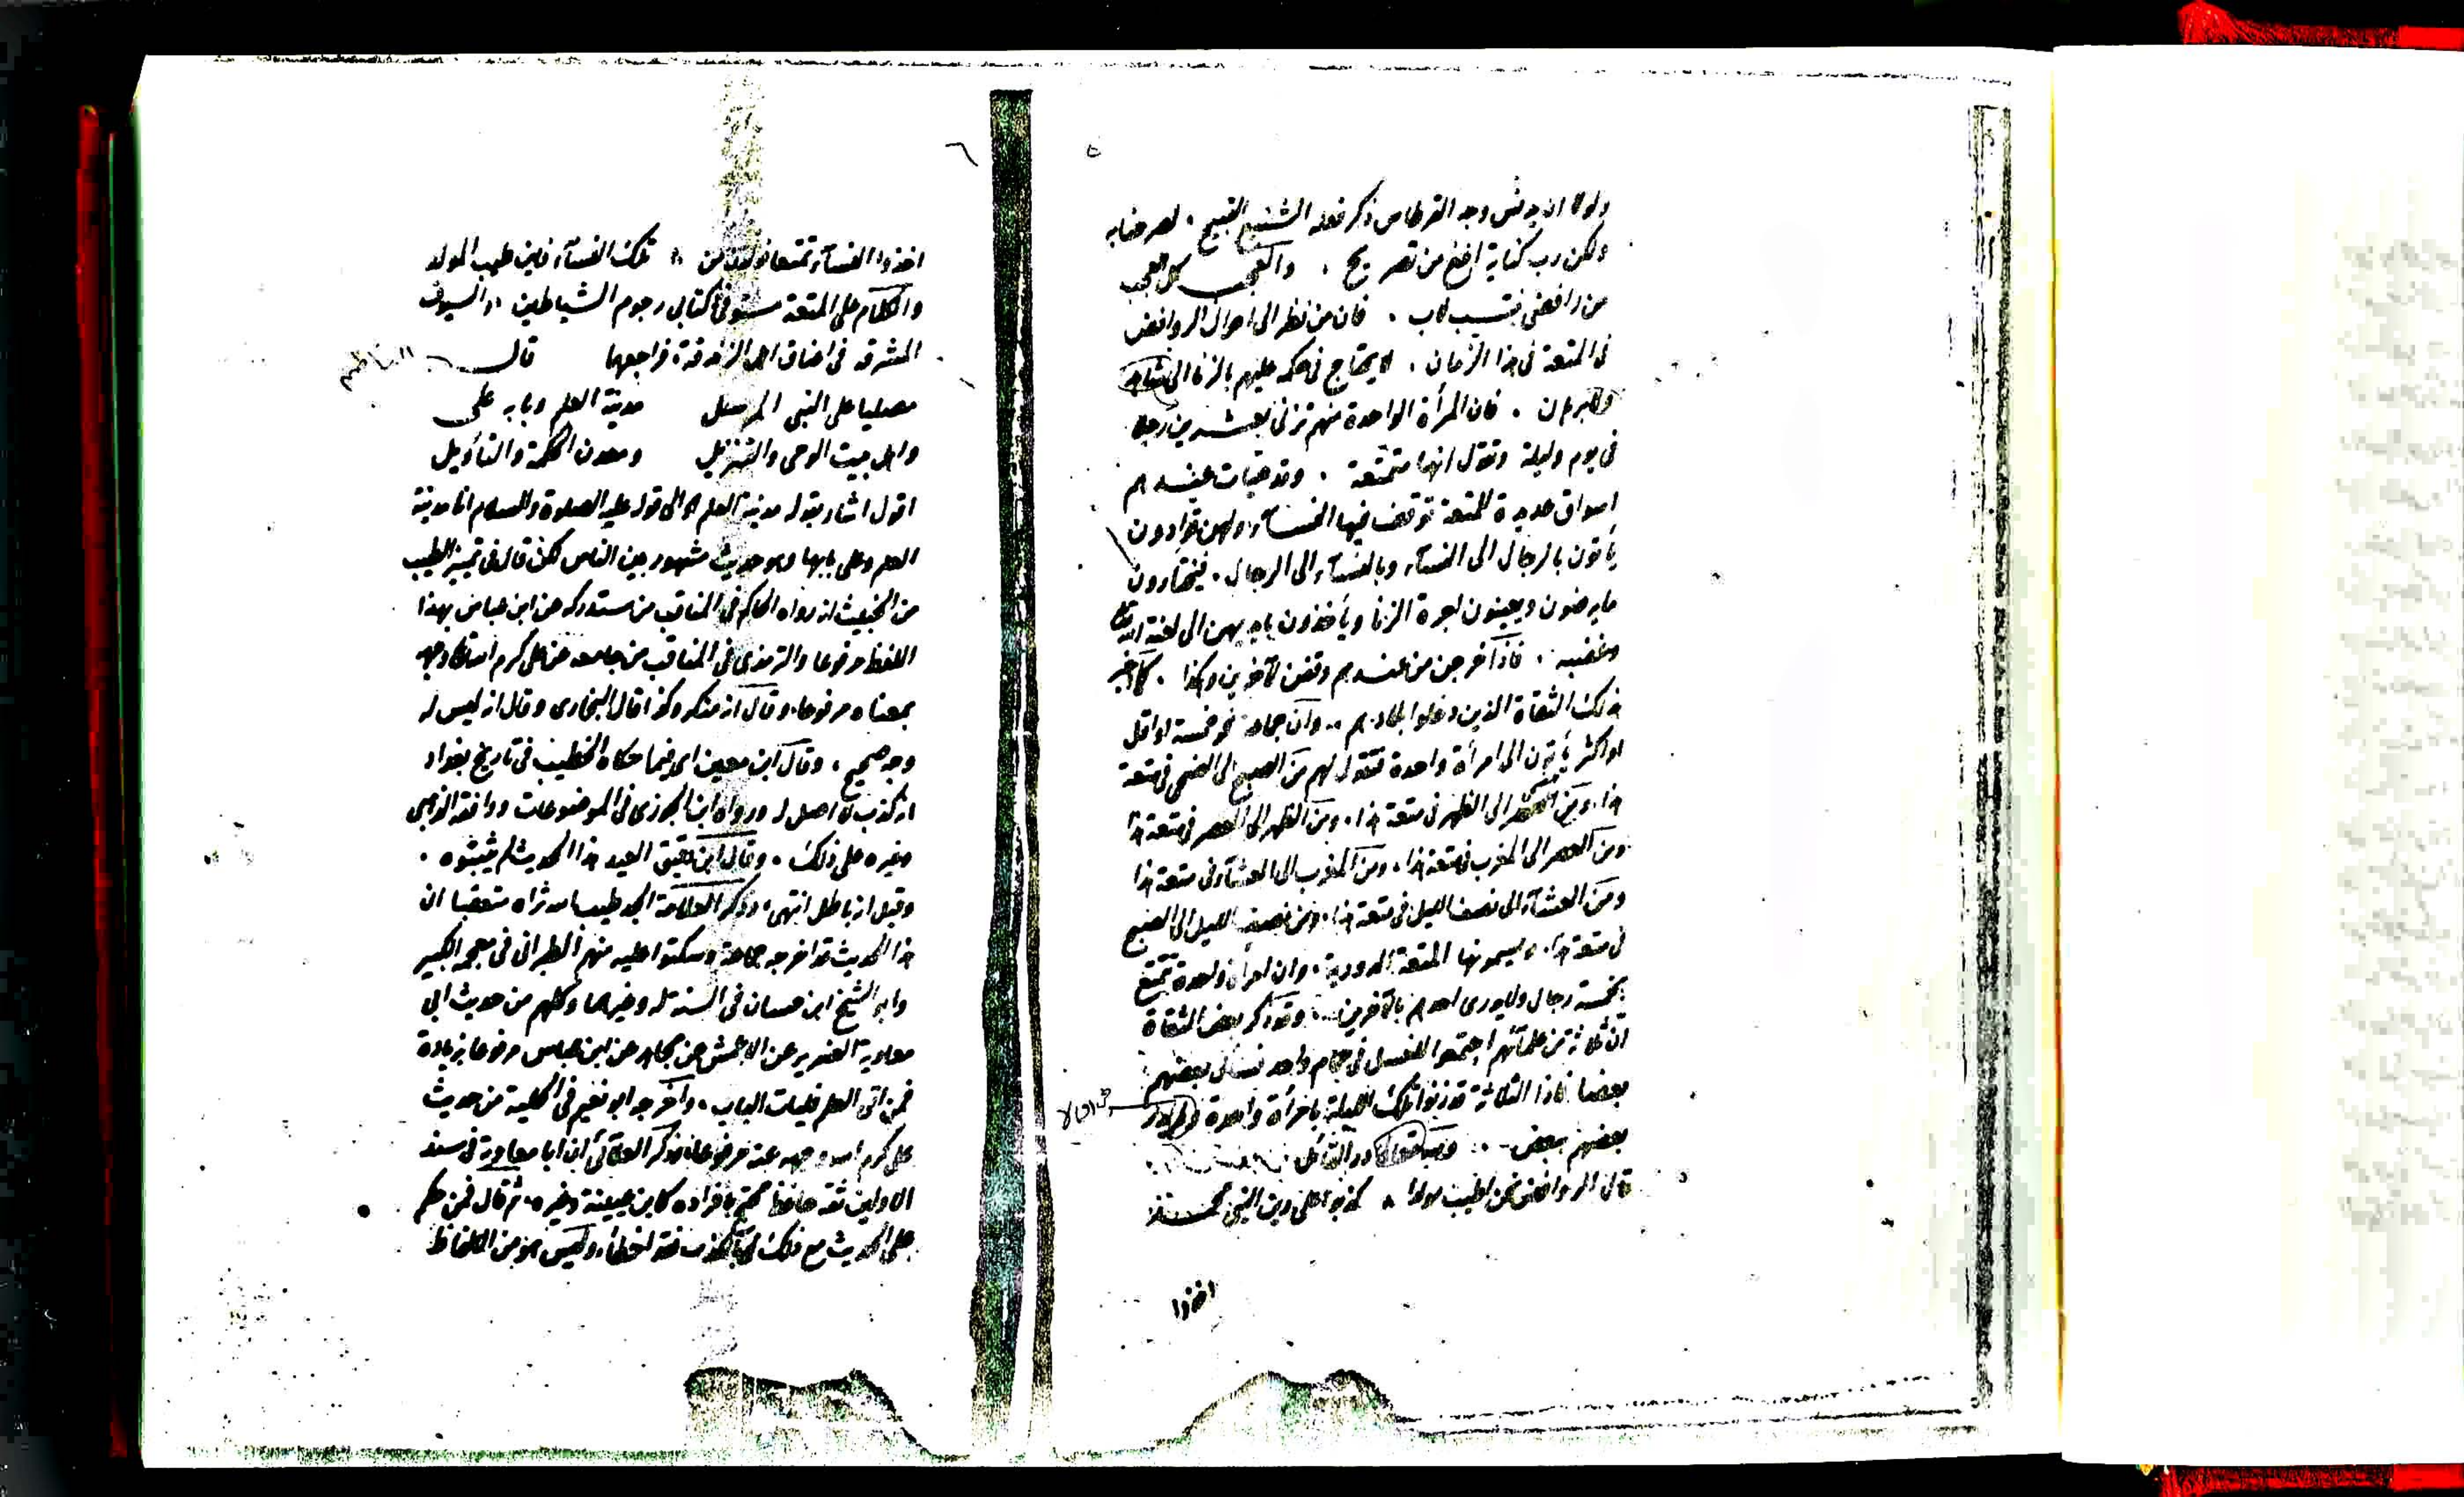 ٥
ولولا ان يدنس وجه القرطاس ذكر فعله الشنيع القبيح ،
ولكن رب كناية ابلغ من تصريح ، والعجب كل العجب
من رافضى ينتسب لاب ، فان من نظر الى احوال الروافض
فى المتعة فى هذا الزمان ، لا يحتاج فى حكمه عليهم بالزنا الى شاهد
ولا برهان ، فان المرأة الواحدة منهم تزنى بعشرين رجلا
فى يوم وليلة وتقول انها متمتعة ، وقد هيأت عندهم
اسواق عديدة للمتعة توقف فيها النسآء ولهن قوادون
يأتون بالرجال الى النسآء وبالنسآء الى الرجال ، فيختارون
ما يرضون ويعينون اجرة الزنا ويأخذون بايديهن الى لعنة الله تعالى
وغضبه ، فاذا خرجن من عندهم وقفن لآخرين وهكذا ، كما اخبر
بذلك الثقاة الذين دخلوا بلادهم ، وان جماعة نحو خمسة او اقل
او اكثر يأتون الى امرأة واحدة فتقول لهم من الصبح الى الضحى فى متعة
هذا ، ومن الضحى الى الظهر فى متعة هذا ، ومن الظهر الى العصر فى متعة هذا
ومن العصر الى المغرب فى متعة هذا ، ومن المغرب الى العشآء فى متعة هذا
ومن العشآء الى نصف الليل فى متعة هذا ، ومن نصف الليل الى الصبح
فى متعة هذا ، ويسمونها المتعة الدورية ، وان امرأة واحدة تتمتع
بخمسة رجال ولا يدرى احدهم بالآخرين ، وقد ذكر بعض الثقاة
ان ثلاثة من علمآئهم اجتمعوا للغسل فى حمام واحد فسأل بعضهم
بعضا فاذا الثلاثة قد زنوا تلك الليلة بامرأة واحدة
بعضهم ببعض ، ولله در القآئل
قال الروافض نحن اطيب مولدا ، كذبوا على دين النبى محمد
اخذوا
٦
اخذوا النسآء تمتعا فولدن من ، تلك النسآء فاين طيب المولد
والكلام على المتعة مستوفى فى كتابى رجوم الشياطين ، والسيوف
المشرقة فى اعناق اهل الزندقة فراجعها قال الناظم
مصليا على النبى المرسل مدينة العلم وبابه على
واهل بيت الوحى والتنزيل ومعدن الحكمة والتأويل
اقول اشار بقوله مدينة العلم الى قوله عليه الصلوة والسلام انا مدينة
العلم وعلى بابها وهو حديث مشهور بين الناس لكن قال فى تمييز الطيب
من الخبيث انه رواه الحاكم فى المناقب من مستدركه عن ابن عباس بهذا
اللفظ مرفوعا والترمذى فى المناقب من جامعه عن على كرم الله تعالى وجهه
بمعناه مرفوعا وقال انه منكر وكذا قال البخارى وقال انه ليس له
وجه صحيح ، وقال ابن معين اى فيما حكاه الخطيب فى تاريخ بغداد
انه كذب لا اصل له ورواه ابن الجوزى فى الموضوعات ووافقه الذهبى
وغيره على ذلك ، وقال ابن دقيق العيد هذا الحديث لم يثبتوه ،
وقيل انه باطل انتهى ، وذكر العلامة الجد طيب الله ثراه متعقبا ان
هذا الحديث قد اخرجه جماعة وسكتوا عليه منهم الطبرانى فى معجمه الكبير
وابو الشيخ ابن حسان فى السنة له وغيرهما وكلهم من حديث ابى
معاوية الضرير عن الاعمش عن مجاهد عن ابن عباس مرفوعا بزيادة
فمن اتى العلم فليات الباب ، واخرجه ابو نعيم فى الحلية من حديث
على كرم الله وجهه عنه مرفوعا ان ابا معاوية فى سند
الاولين ثقة حافظ يحتج بافراده كابن عيينة وغيره ، ثم قال فمن حكم
على الحديث مع ذلك بالكذب فقد اخطأ ، وليس هو من الالفاظ